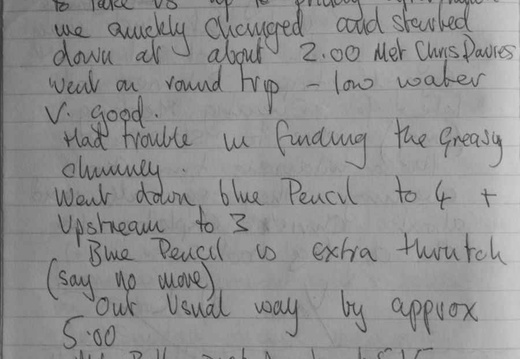 to take us up to
we quickly changed and started
down at about 2.00 Met Chris Davies
Went on round trip - low water
V. good.
Had trouble in finding the Greasy
chimney.
Went down blue Pencil to 4 +
Upstream to 3
Blue Pencil is extra thrutch
(say no more)
Out Usual way by approx
5.00